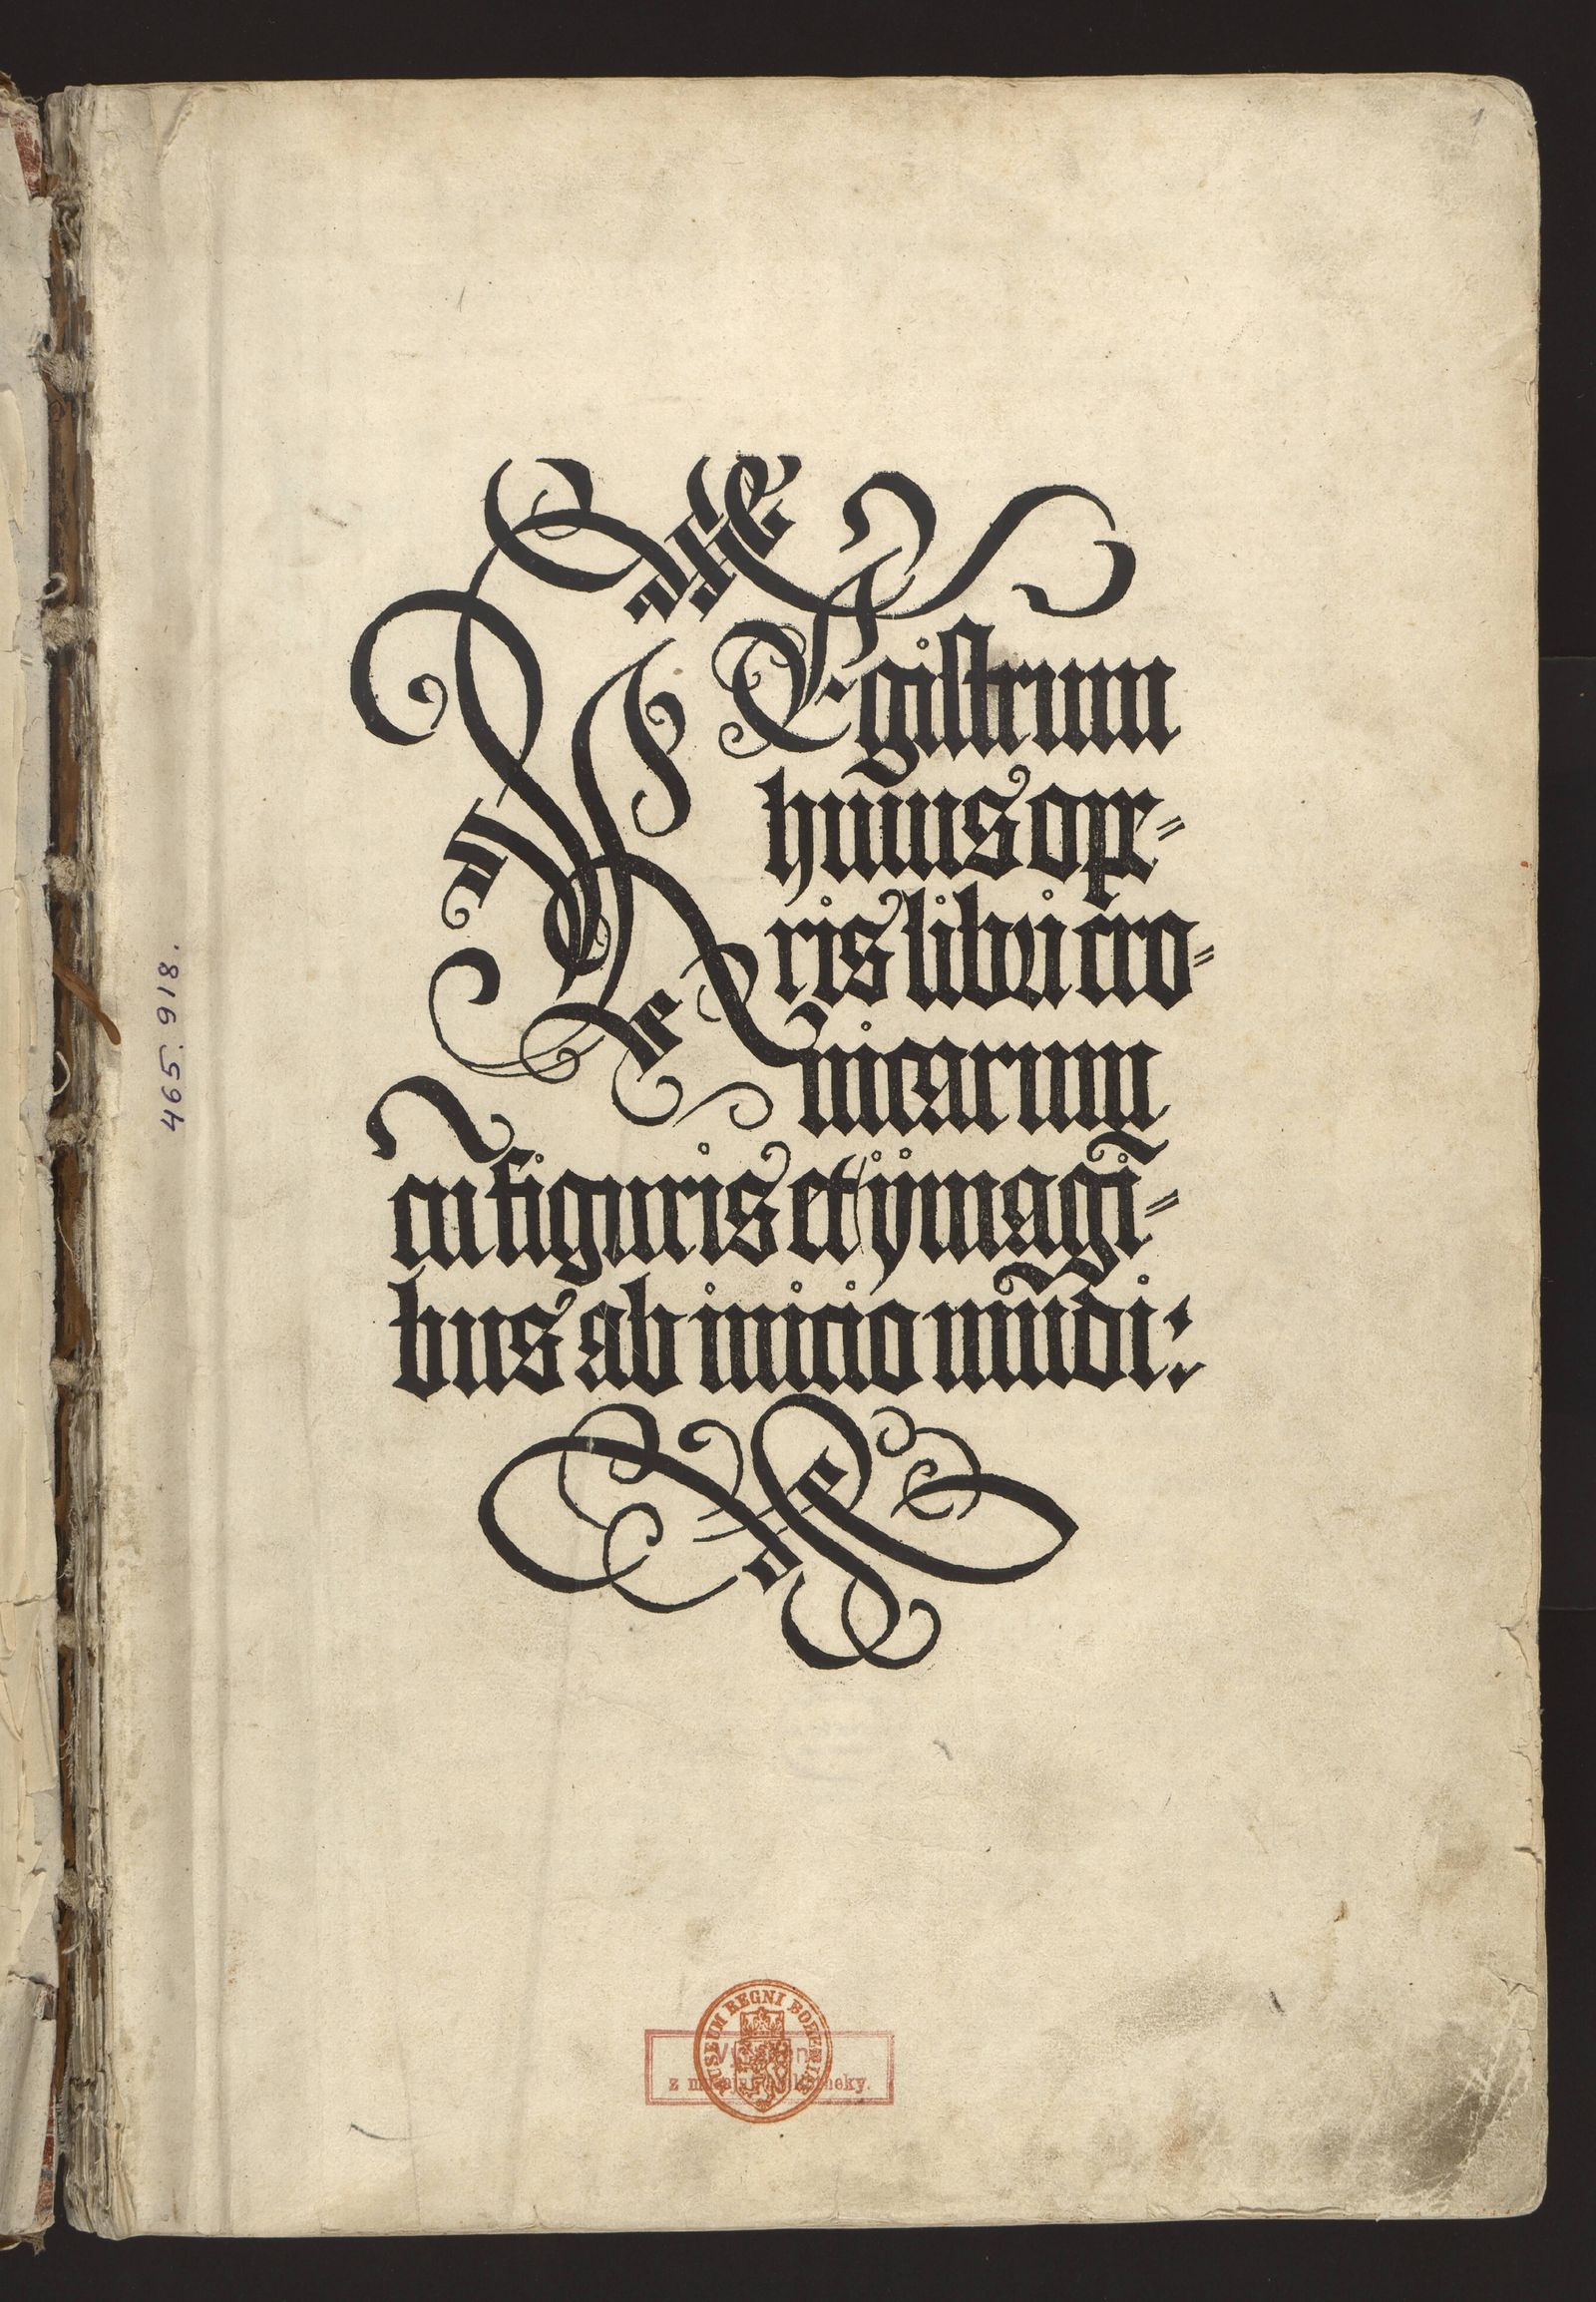 1
REgistrum
huius ope=
ris libri cro=
nicarum
cū figuris et ymagī=
bus ab inicio mūdi:
465.918.
MUSEUM REGNI BOHEMIAE
z